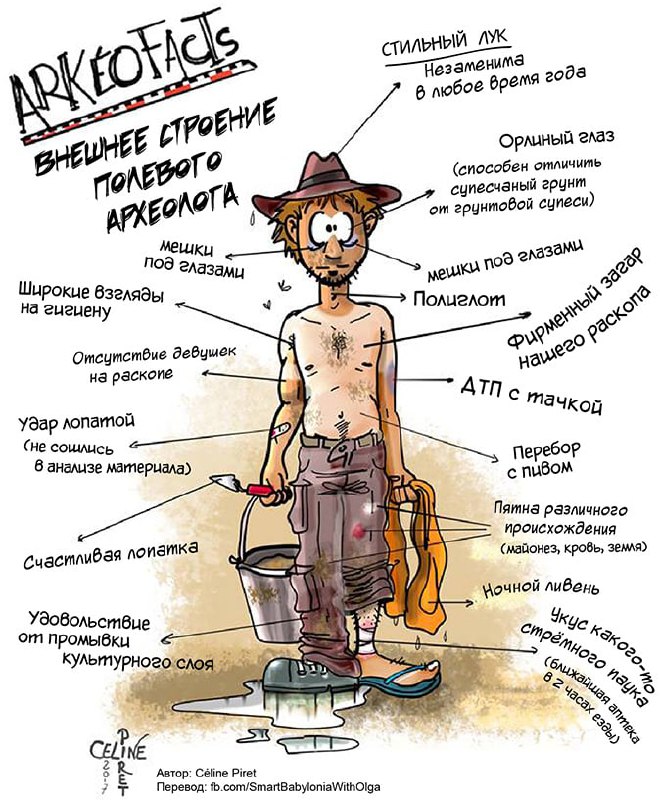 ARKÉOFACTS
ВНЕШНЕЕ СТРОЕНИЕ
ПОЛЕВОГО
АРХЕОЛОГА
СТИЛЬНЫЙ ЛУК
Незаменима
в любое время года
Орлиный глаз
(способен отличить
супесчаный грунт
от грунтовой супеси)
мешки
под глазами
мешки под глазами
Широкие взгляды
на гигиену
Полиглот
Фирменный загар
нашего раскопа
Отсутствие девушек
на раскопе
ДТП с тачкой
Удар лопатой
(не сошлись
в анализе материала)
Перебор
с пивом
Пятна различного
происхождения
(майонез, кровь, земля)
Счастливая лопатка
Ночной ливень
Удовольствие
от промывки
культурного слоя
Укус какого-то
стрёмного паука
(ближайшая аптека
в 2 часах езды)
CÉLINE
PIRET
2017
Автор: Céline Piret
Перевод: fb.com/SmartBabyloniaWithOlga